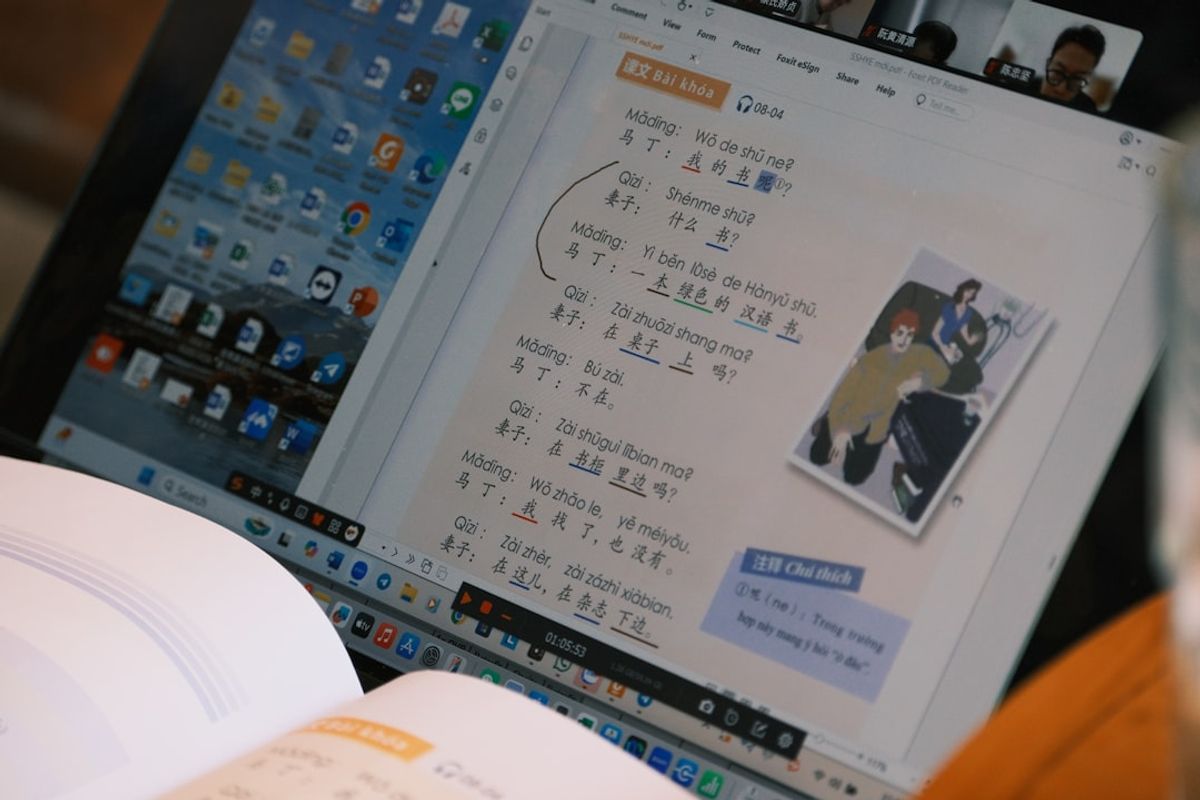 Start
Comment
View
Form
Protect
Foxit eSign
Share
Help
Tell me...
SSHYE mới.pdf - Foxit PDF Reader
SSHYE mới.pdf
阮黄清源
陈忠坚
课文 Bài khóa
08-04
Mǎdīng: Wǒ de shū ne?
马丁：我的书呢①?
Qīzi: Shénme shū?
妻子：什么书?
Mǎdīng: Yì běn lǜsè de Hànyǔ shū.
马丁：一本绿色的汉语书。
Qīzi: Zài zhuōzi shang ma?
妻子：在桌子上吗?
Mǎdīng: Bú zài.
马丁：不在。
Qīzi: Zài shūguì lǐbian ma?
妻子：在书柜里边吗?
Mǎdīng: Wǒ zhǎo le, yě méiyǒu.
马丁：我找了，也没有。
Qīzi: Zài zhèr, zài zázhì xiàbian.
妻子：在这儿，在杂志下边。
注释 Chú thích
①呢（ne）: Trong trường
hợp này mang ý hỏi "ở đâu"
Search
01:05:53
117%
Bài khóa
08-04